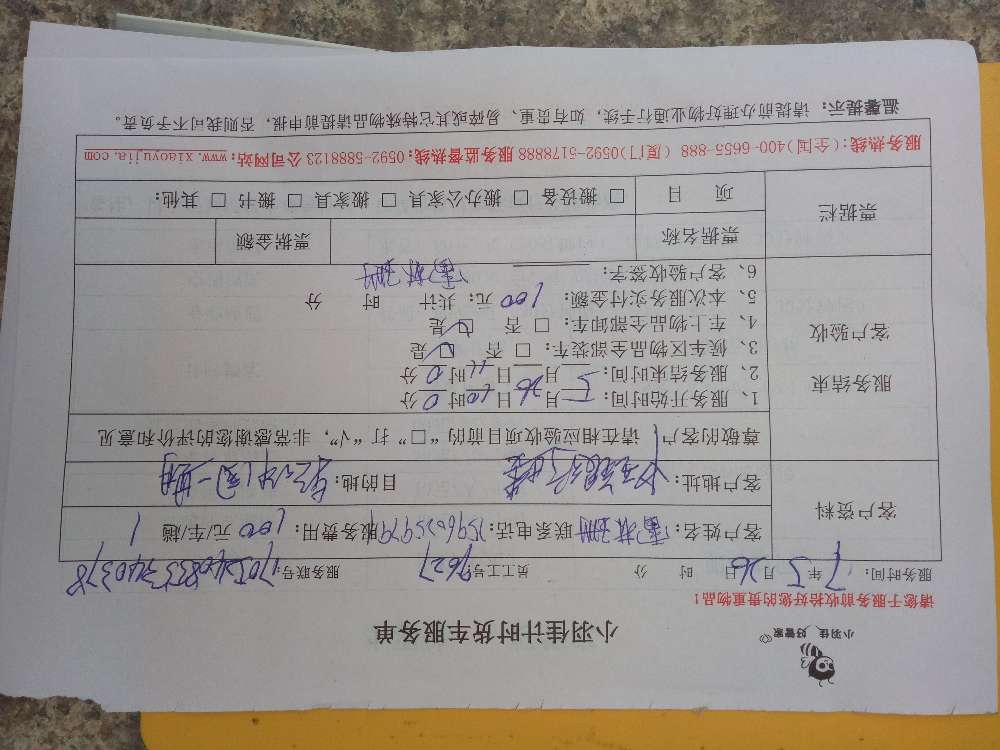 小羽佳 好管家
小羽佳计时货车服务单
请您于服务前收拾好您的贵重物品!
服务时间: 7 年 5 月 26 日 时 分 员工工号: 9627 服务联号:
客户资料
客户姓名: 联系电话: 服务费用: 100 元/车/趟 1
客户地址: 目的地:
尊敬的客户 请在相应验收项目前的“□”打“√”, 非常感谢您的评价和意见
服务结束
客户验收
1、服务开始时间: 5 月 26 日 10 时 0 分
2、服务结束时间: 月 日 11 时 0 分
3、候车区物品全部装车: □ 否 □ 是
4、车上物品全部卸车: □ 否 □ 是
5、本次服务实付金额: 100 元; 共计 时 分
6、客户验收签字:
票据栏
票据名称 票据金额
项 目 □ 搬设备 □ 搬办公家具 □ 搬家具 □ 搬书 □ 其他:
服务热线:(全国)400-6655-888 (厦门)0592-5178888 服务监督热线: 0592-5888123 公司网站: www.xiaoyujia.com
温馨提示: 请提前办理好物业通行手续, 如有贵重、易碎或其它特殊物品请提前申报, 否则我司不予负责。